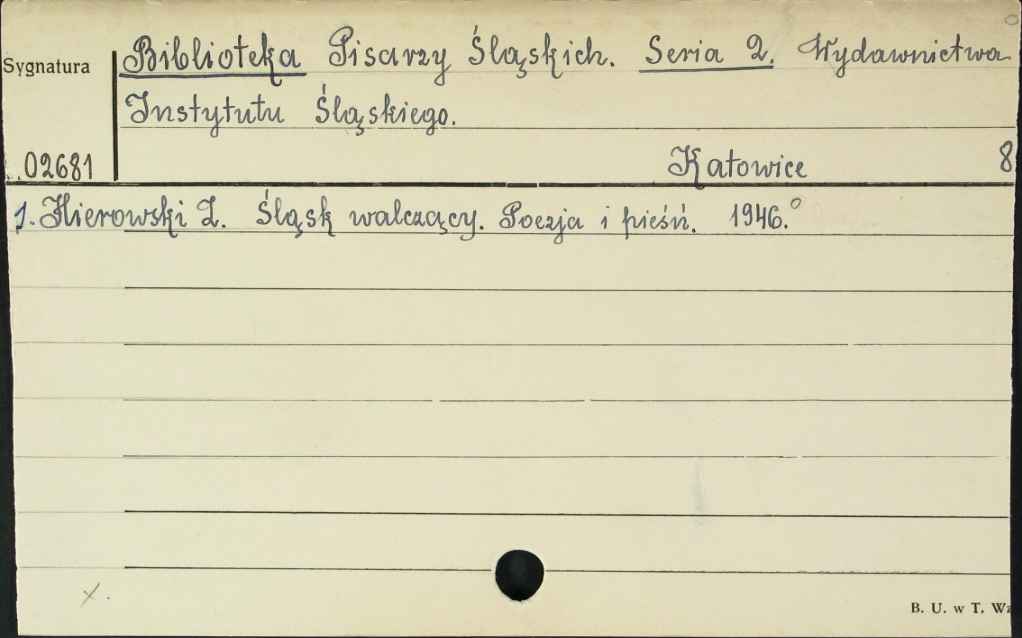 Sygnatura
Biblioteka Pisarzy Śląskich. Seria 2. Wydawnictwa
Instytutu Śląskiego.
02681 Katowice 8
1. Hierowski Z. Śląsk walczący. Poezja i pieśń. 1946.°
x.
B. U. w T.